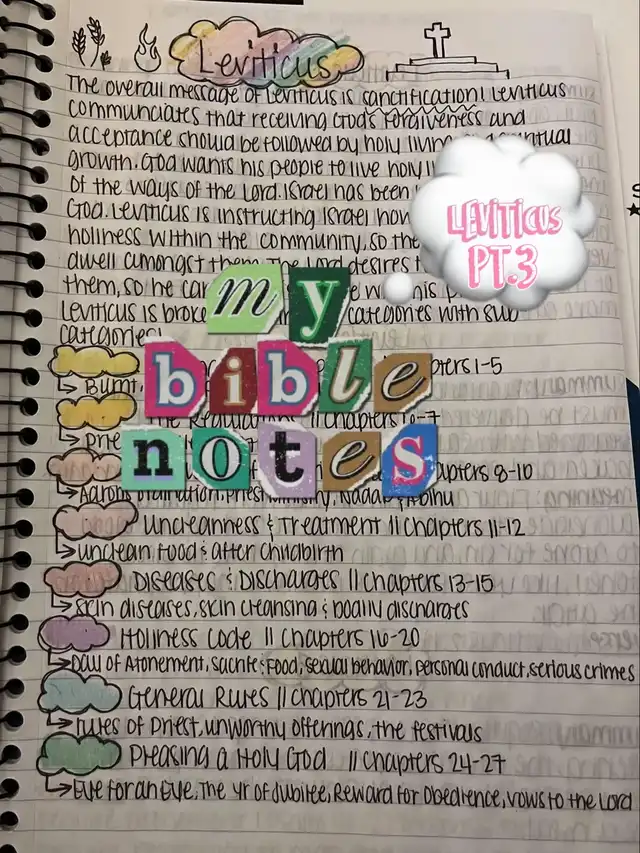 Leviticus
The overall message of Leviticus is sanctification! Leviticus
communicates that receiving God's Forgiveness and
acceptance should be followed by holy living
growth. God wants his people to live holy
of the ways of the Lord. Israel has been
God. Leviticus is instructing Israel how
holiness within the community, so the
dwell amongst them. The Lord desires
them, so he can
Leviticus is broke categories with sub
categories!
LEVITICUS
PT.3
my
bible
notes
chapters 1-5
Burnt,
The Regulations || chapters 6-7
chapters 8-10
Aaron's Ordination, Priest Ministry, Nadab & Abihu
Uncleanness & Treatment || chapters 11-12
unclean Food & after childbirth
Diseases & Discharges || chapters 13-15
skin diseases, skin cleansing & bodily discharges
Holiness Code || chapters 16-20
Day of Atonement, sacrifice & Food, sexual behavior, personal conduct, serious crimes
General Rules || chapters 21-23
rules of Priest, unworthy offerings, the festivals
Pleasing a Holy God || chapters 24-27
Eye for an Eye, The yr of Jubilee, Reward for Obedience, vows to the Lord